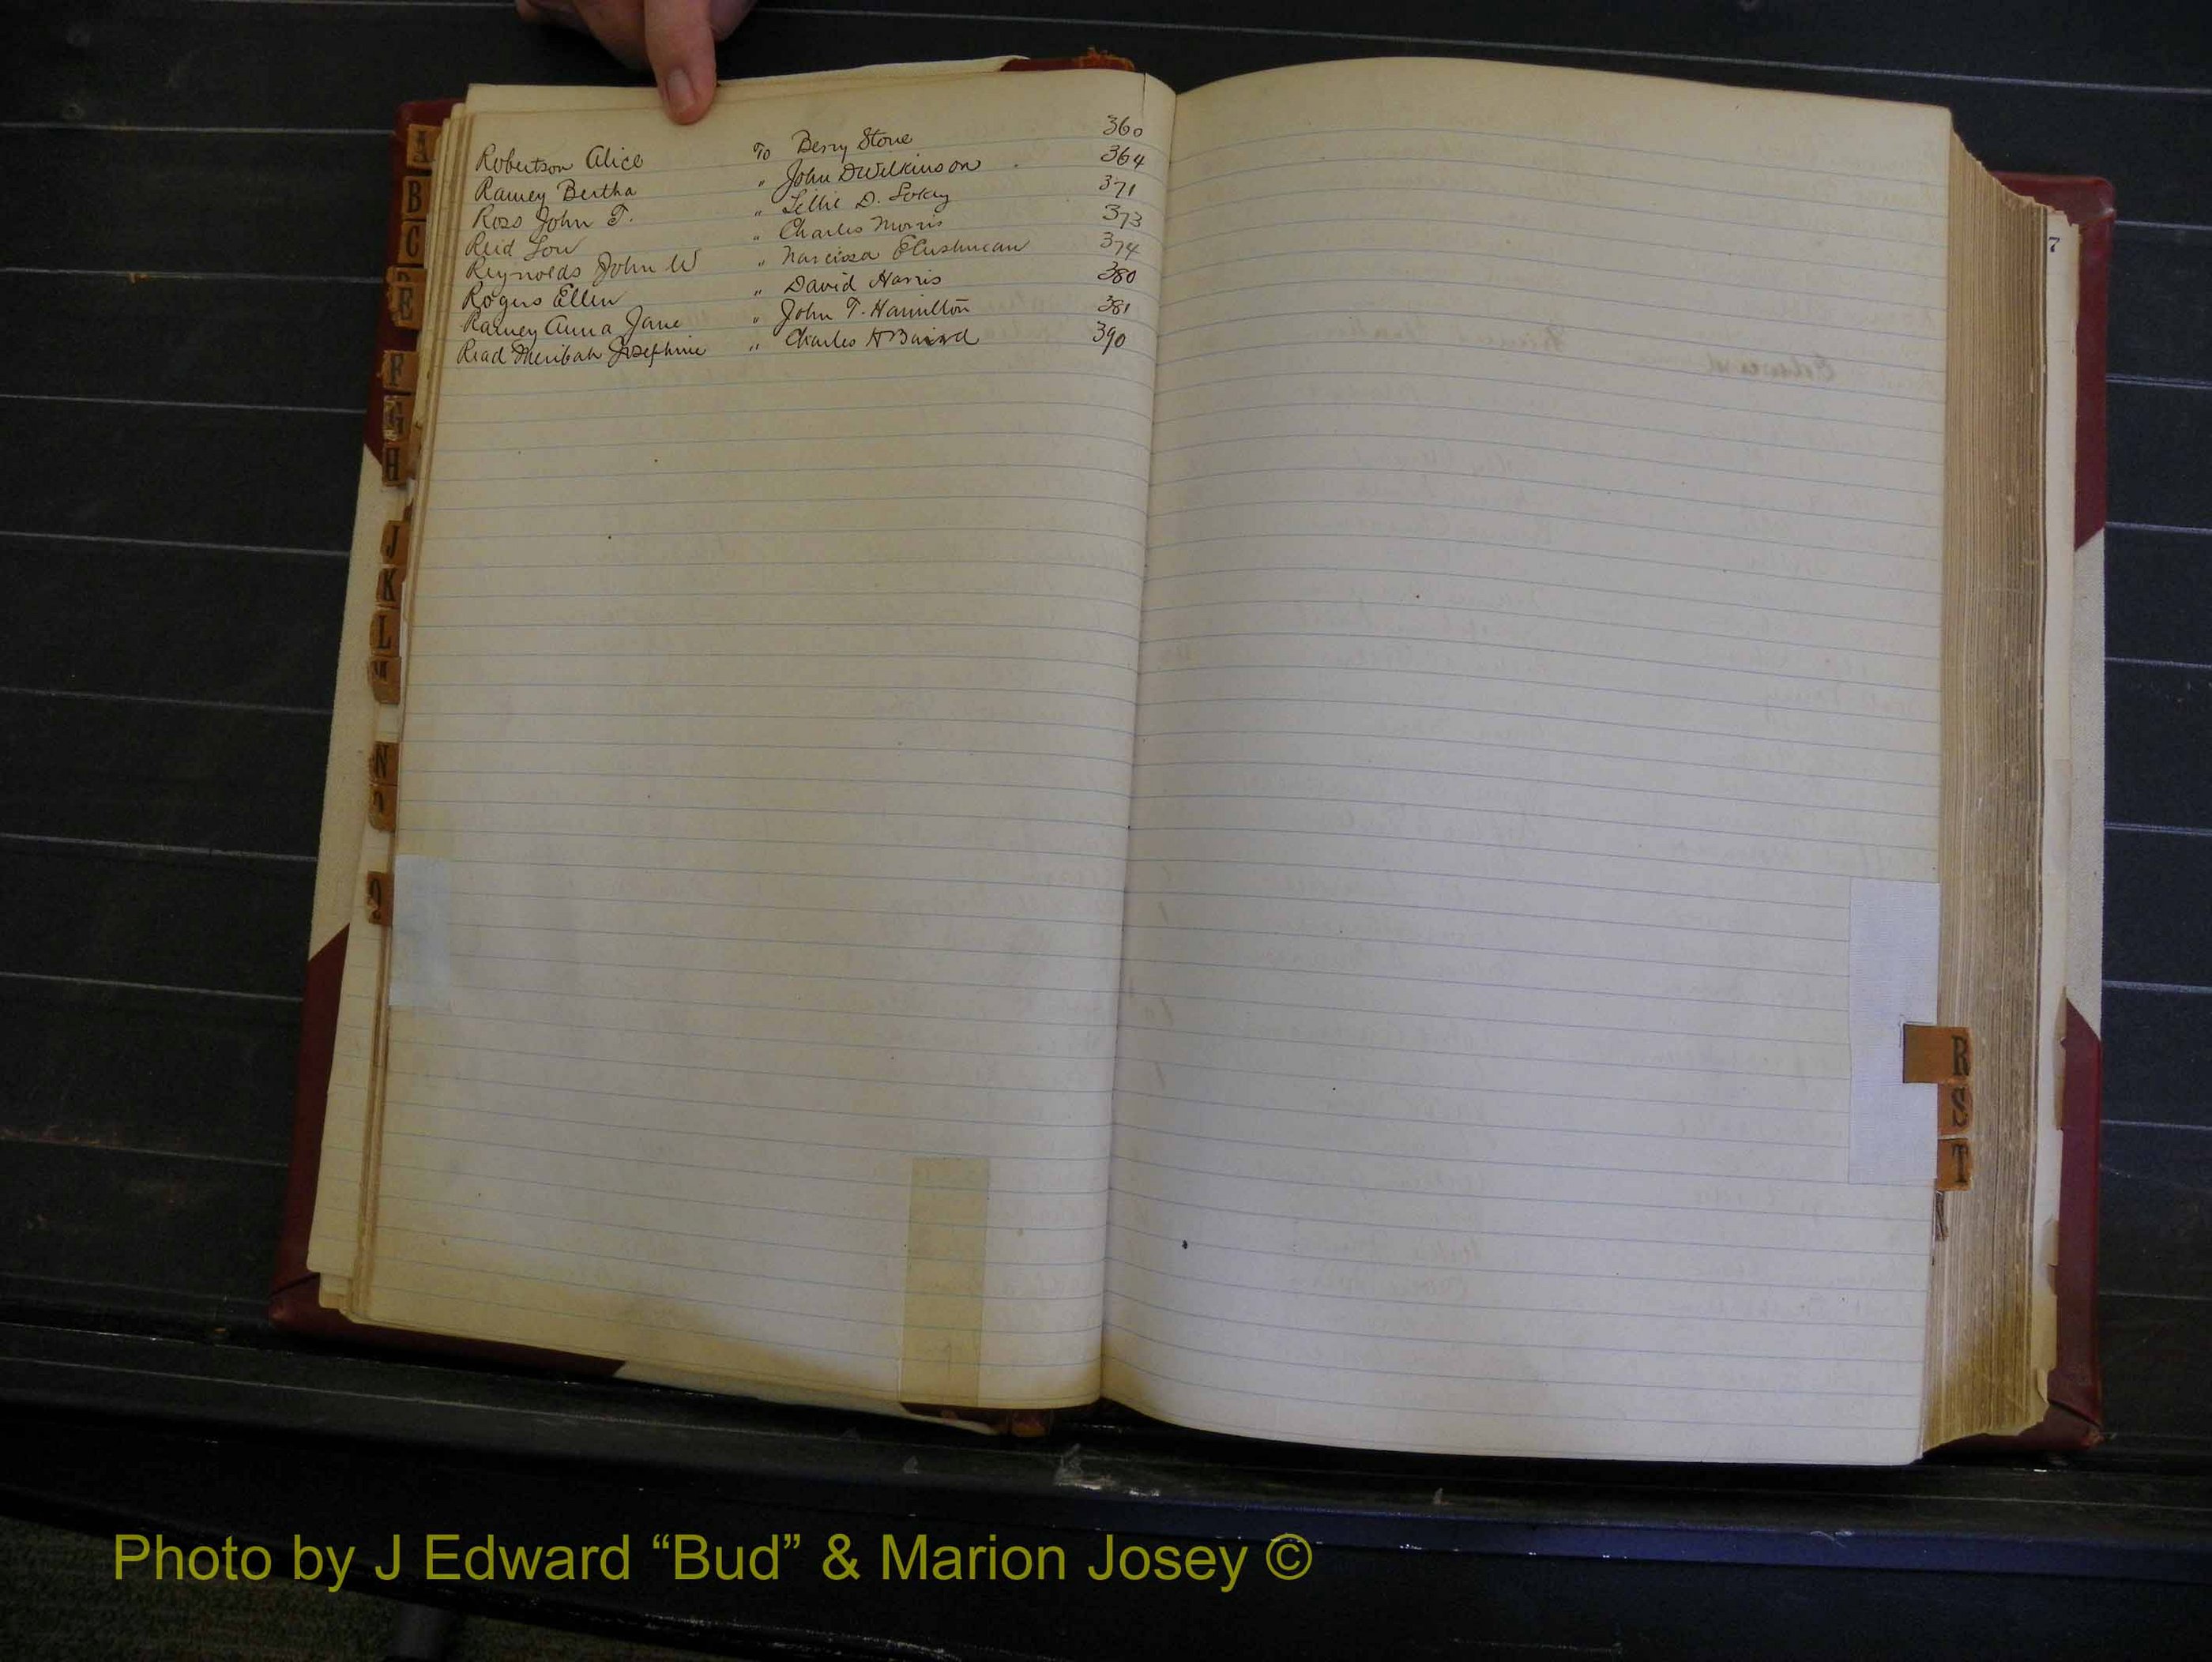 Robertson Alice To Berry Stone 360
Ramey Bertha " John D Wilkinson 364
Ross John T. " Lillie D. Lokey 371
Reid Lou " Charles Morris 373
Reynolds John W " Narcissa 374
Rogers Ellen " David Harris 380
Ramey Anna Jane " John T. Hamilton 381
Read Meribah Josephine " Charles H Baird 390
A
B
C
D
E
F
G
H
J
K
L
M
N
O
Q
7
R
S
T
Photo by J Edward “Bud” & Marion Josey ©